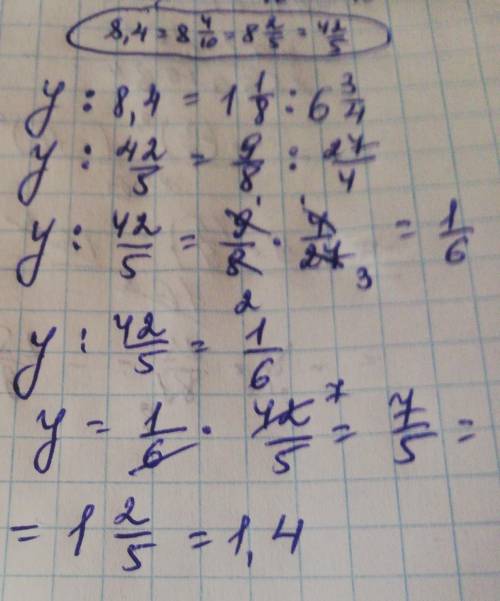 8,4 = 8 4/10 = 8 2/5 = 42/5
y : 8,4 = 1 1/8 : 6 3/4
y : 42/5 = 9/8 : 27/4
y : 42/5 = 9/8 · 4/27 = 1/6
1 1
2 3
y : 42/5 = 1/6
y = 1/6 · 42/5 = 7/5 =
7
= 1 2/5 = 1,4